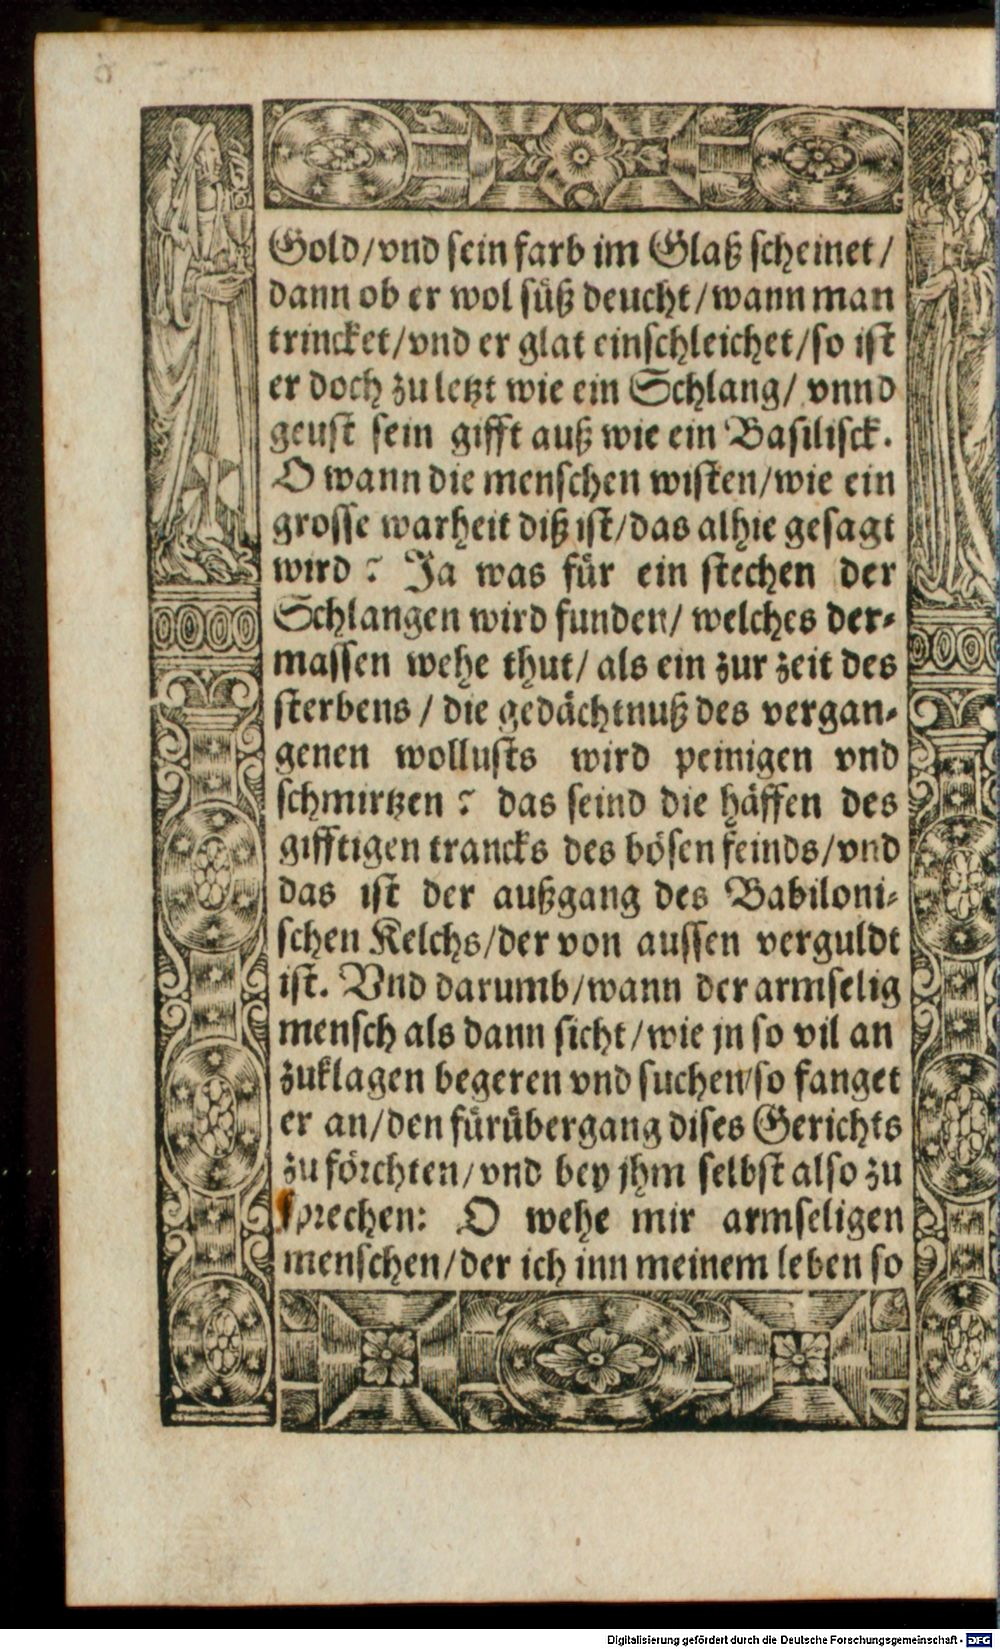 Gold/vnd sein farb im Glaß scheinet/
dann ob er wol süß deucht/wann man
trincket/vnd er glat einschleichet/so ist
er doch zu letzt wie ein Schlang/ vnnd
geust sein gifft auß wie ein Basilisck.
O wann die menschen wisten/wie ein
grosse warheit diß ist/das alhie gesagt
wird? Ja was für ein stechen der
Schlangen wird funden/ welches der-
massen wehe thut/ als ein zur zeit des
sterbens / die gedächtnuß des vergan-
genen wollusts wird peinigen vnd
schmirtzen? das seind die häffen des
gifftigen trancks des bösen feinds/vnd
das ist der außgang des Babiloni-
schen Kelchs/der von aussen verguldt
ist. Vnd darumb/wann der armselig
mensch als dann sicht/wie jn so vil an
zuklagen begeren vnd suchen/so fanget
er an/den fürübergang dises Gerichts
zu förchten/vnd bey jhm selbst also zu
sprechen: O wehe mir armseligen
menschen/der ich inn meinem leben so
Digitalisierung gefördert durch die Deutsche Forschungsgemeinschaft - DFG